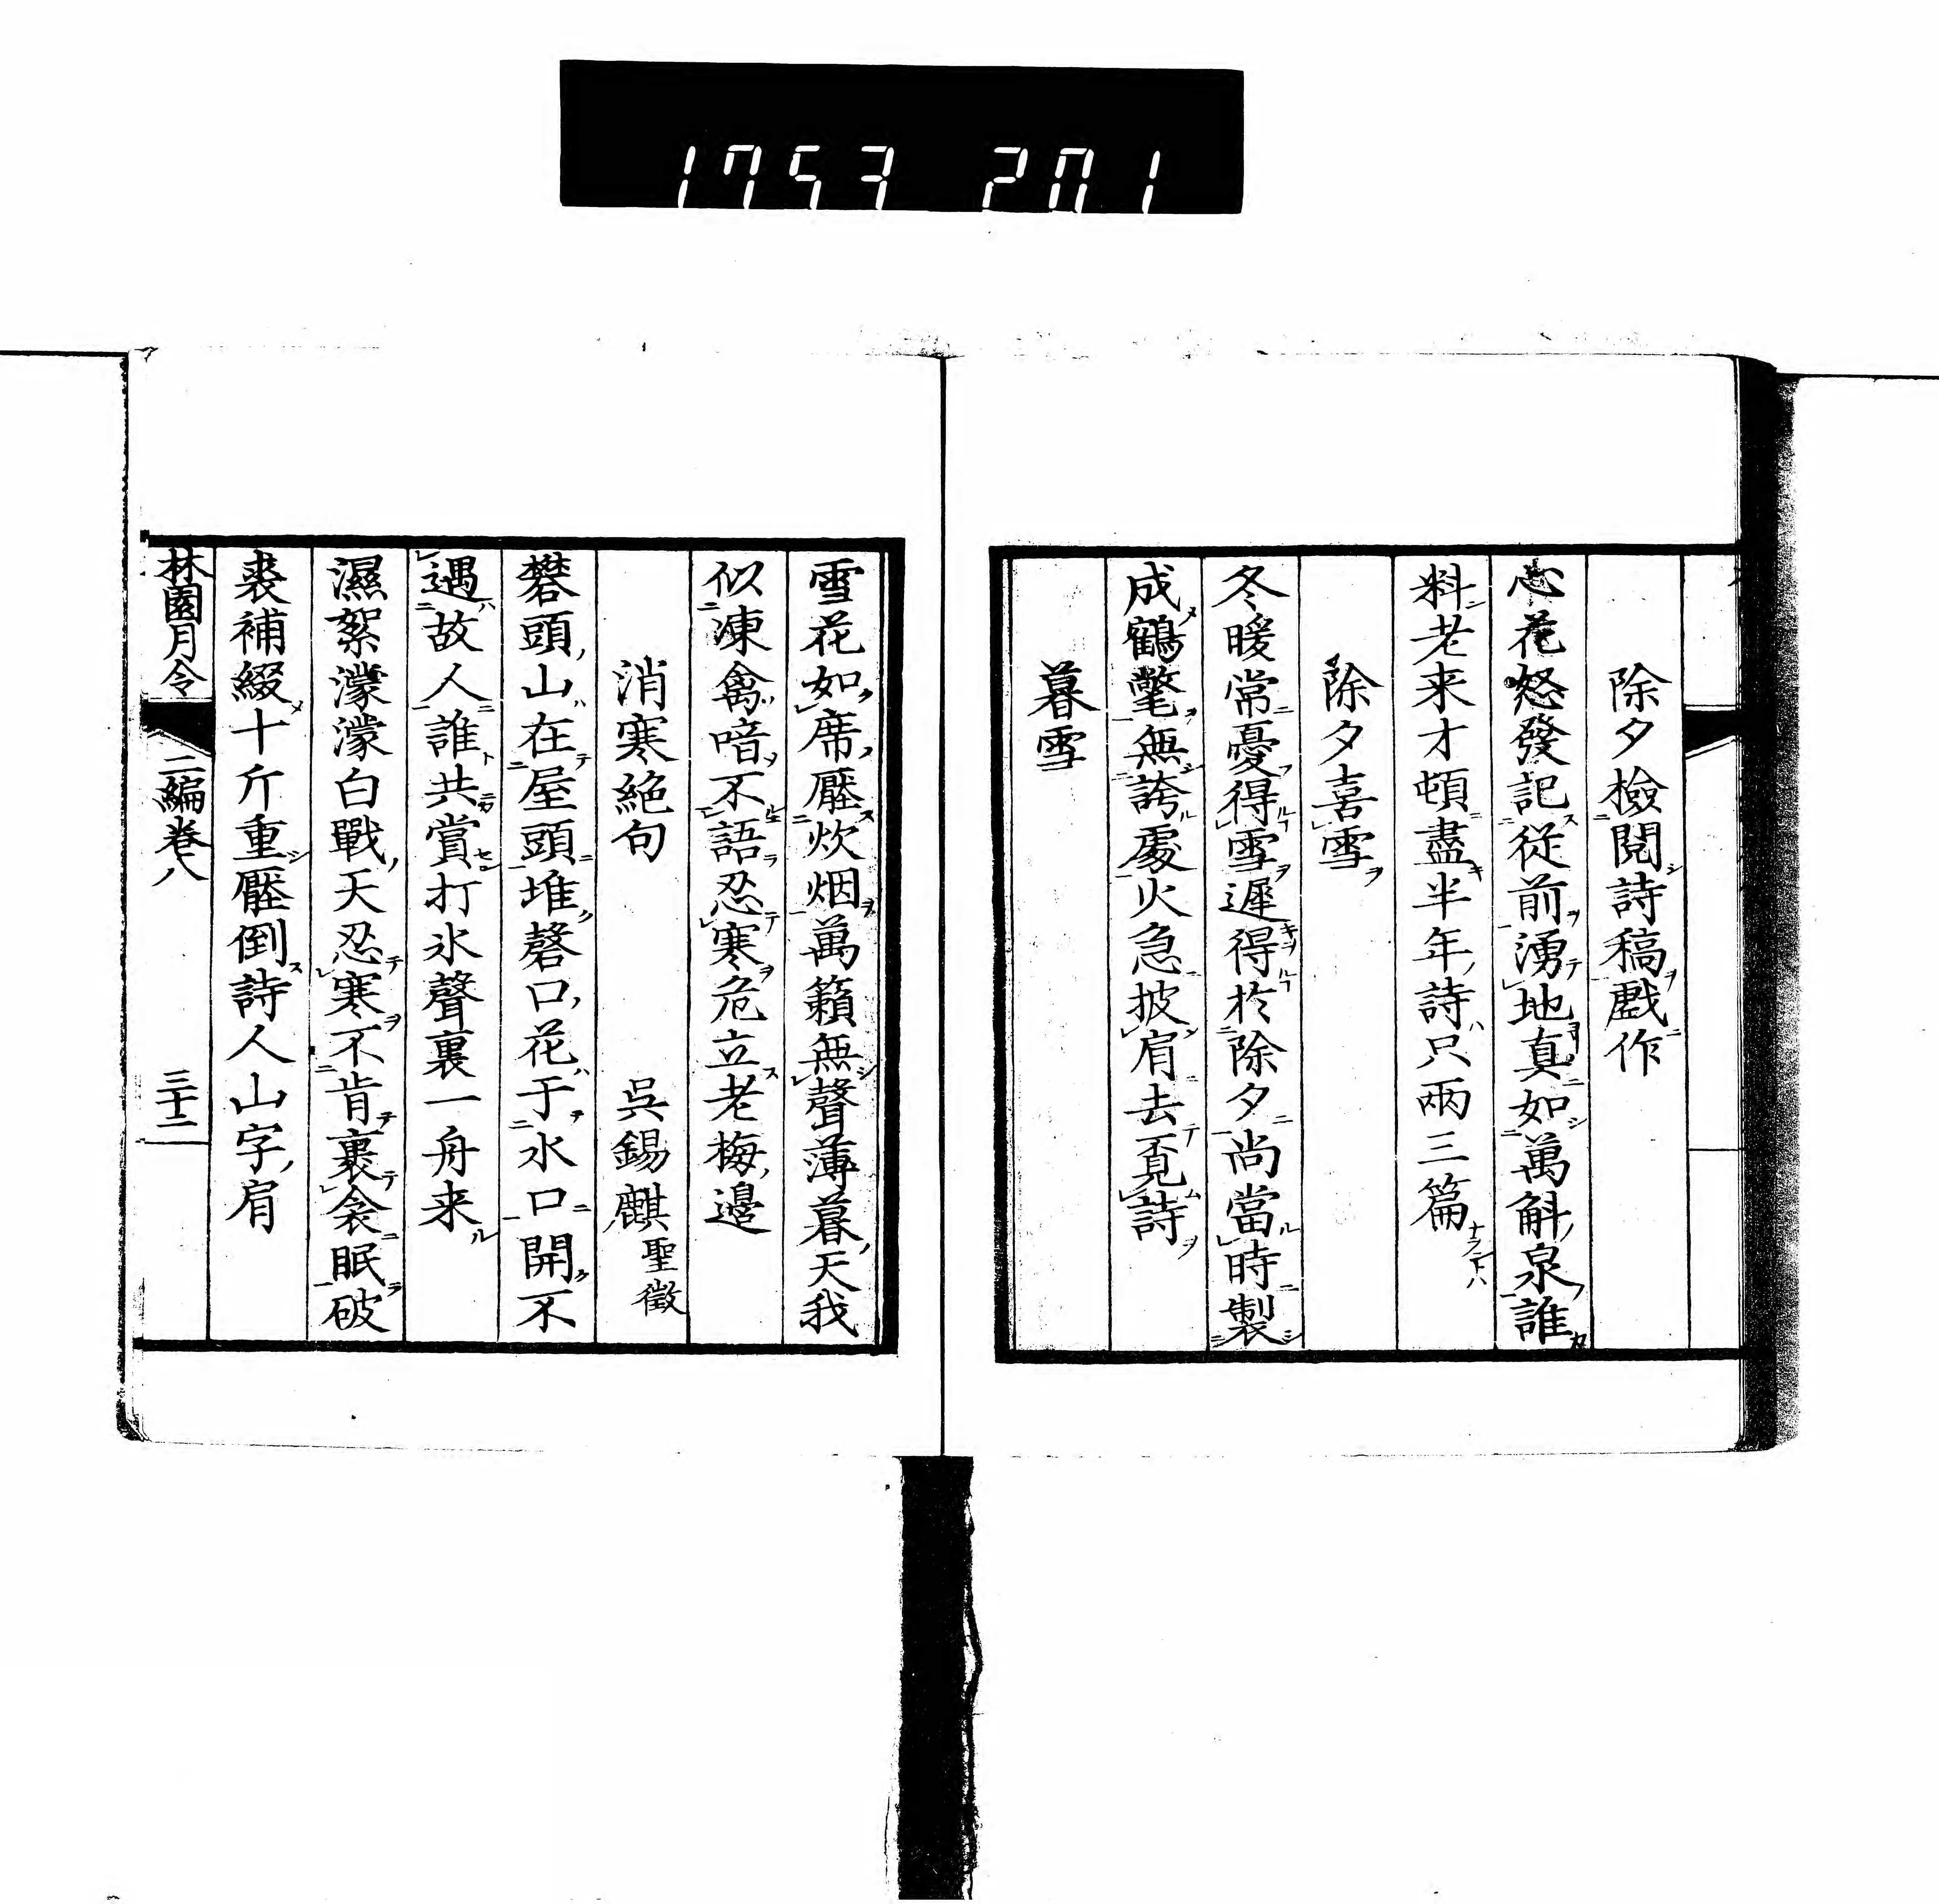 1753 201
除夕檢閱詩稿戲作
心花怒發記從前湧地真如萬斛泉誰
料老来才頓盡半年詩只兩三篇
除夕喜雪
冬暖常憂得雪遲得於除夕尚當時製
成鶴氅無誇處火急披肩去覔詩
暮雪
雪花如席壓炊烟萬籟無聲薄暮天我
似凍禽喑不語忍寒危立老梅邊
消寒絶句 吳錫麒聖徵
礬頭山在屋頭堆磬口花于水口開不
遇故人誰共賞打氷聲裏一舟来
濕絮濛濛白戰天忍寒不肯裹衾眠破
裘補綴十斤重壓倒詩人山字肩
林園月令 二編卷八 三十二